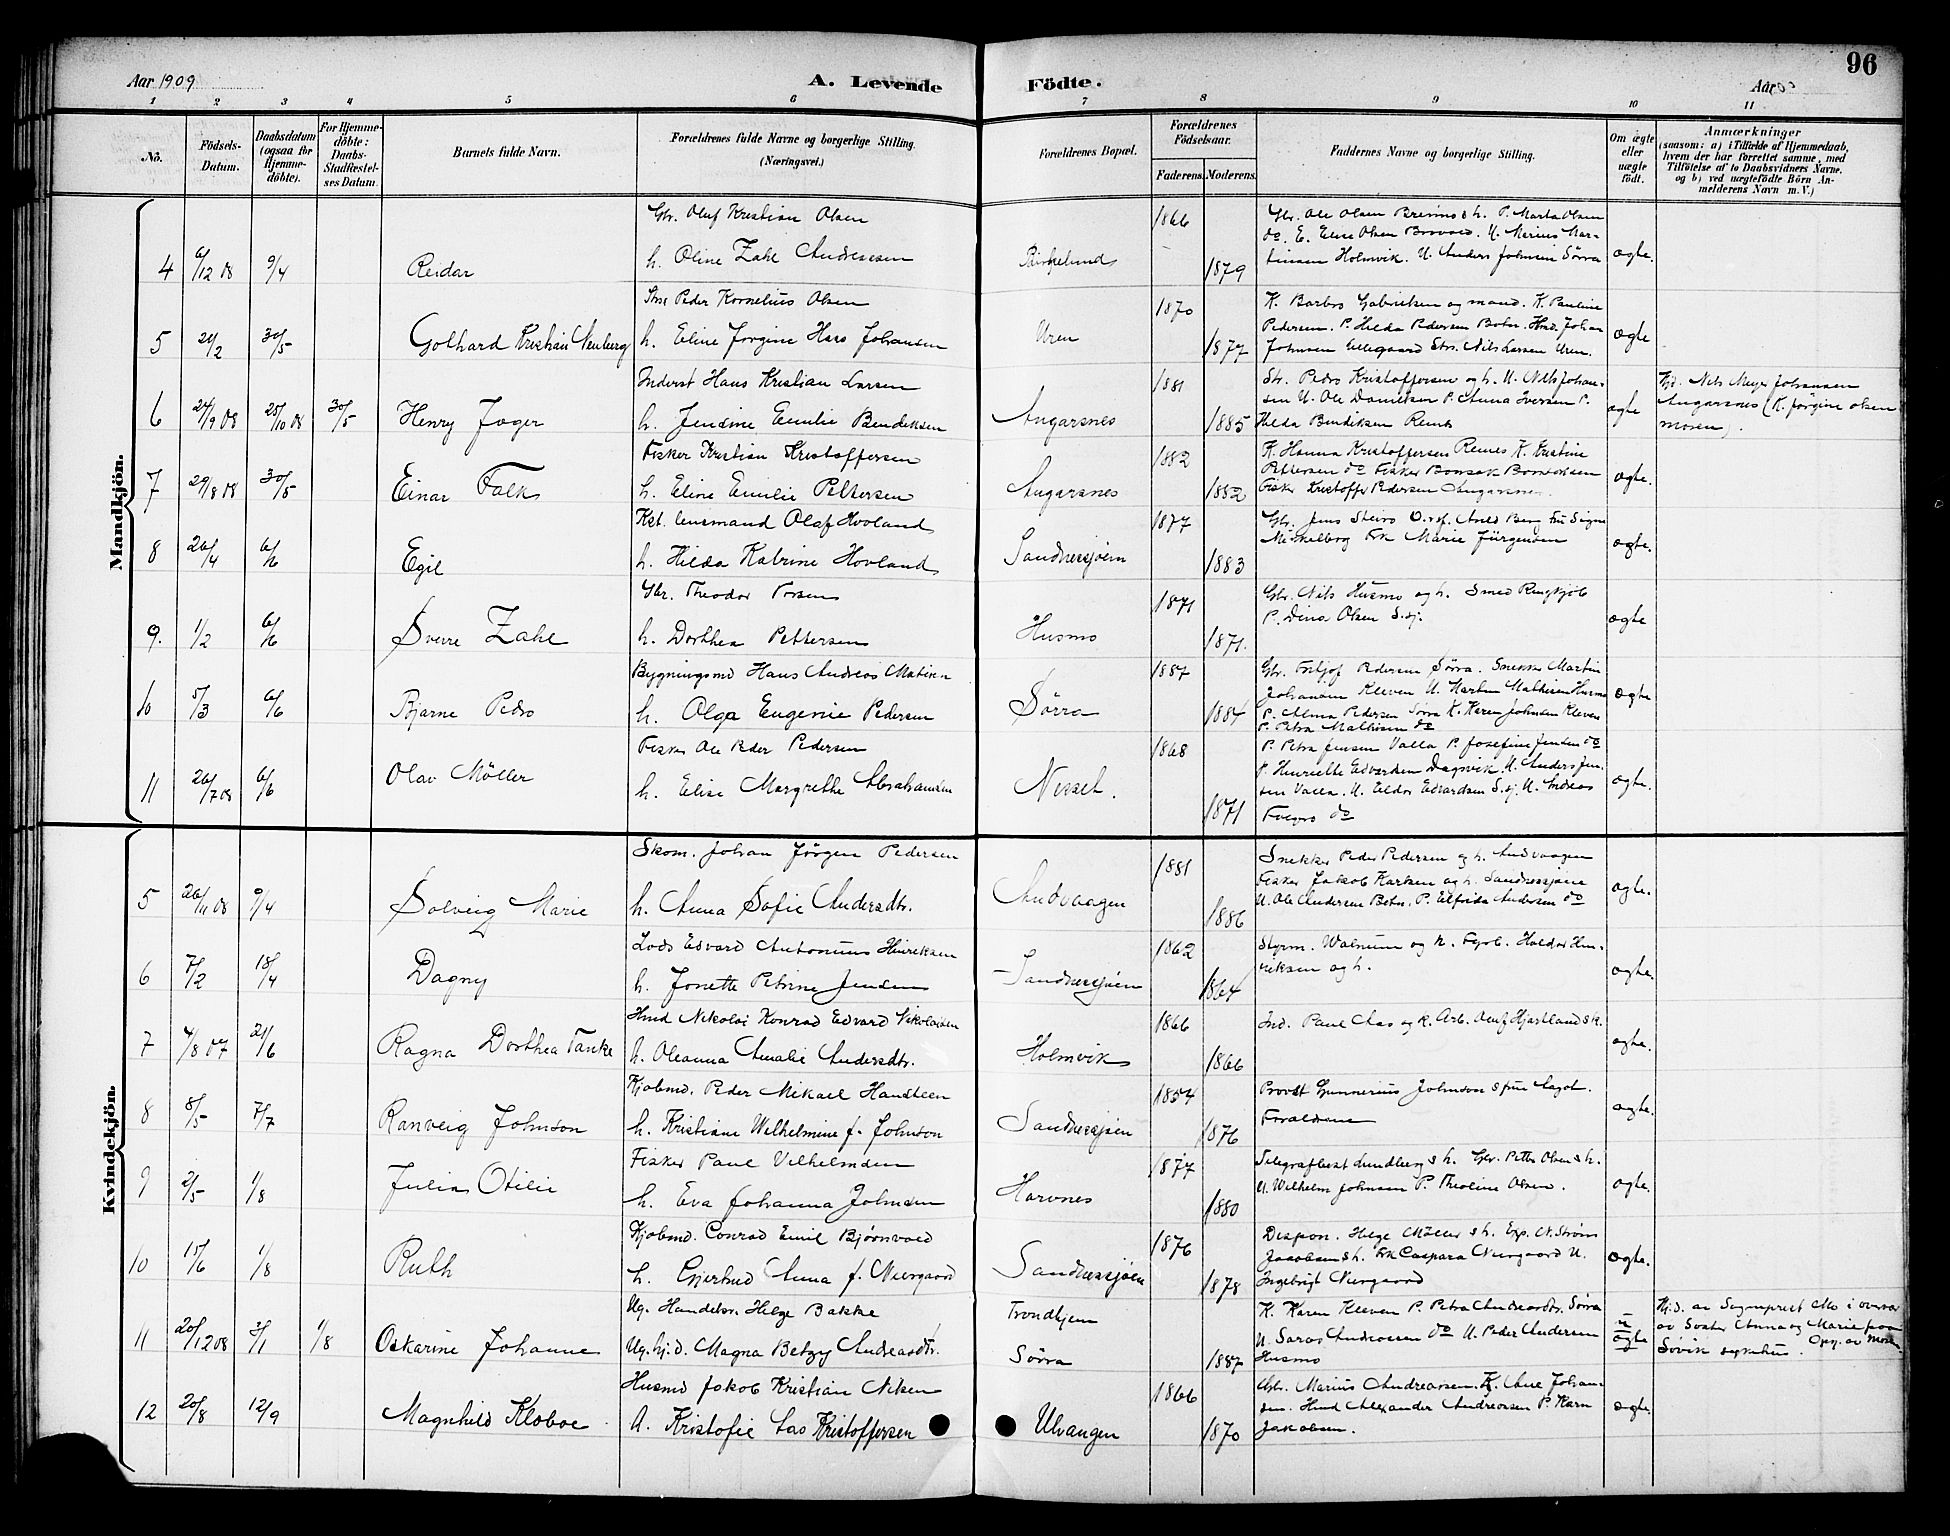 96
Aar 1909
A. Levende
Födte.
Aar
1 2 3 4 5 6 7 8 9 10 11
No.
Födsels-Datum.
Daabsdatum (ogsaa for Hjemme-döbte).
For Hjemme-döbte: Daabs-Stadfæstel-ses Datum.
Barnets fulde Navn.
Forældrenes fulde Navne og borgerlige Stilling. (Næringsvei.)
Forældrenes Bopæl.
Forældrenes Födselsaar.
Faderens. Moderens.
Faddernes Navne og borgerlige Stilling.
Om ægte eller uægte födt.
Anmærkninger
(saasom: a) i Tilfælde af Hjemmedaab, hvem der har forrettet samme, med Tilföielse af to Daabsvidners Navne. og b) ved uægtefödte Börn An-melderens Navn m. V.)
Mandkjön.
Gbr. Oluf Kristian Olsen 1866 Gbr. Ole Olsen & h. P. Marta Olsen
do. E. Elise Olsen U. Marius Mar-
4 6/12 08 9/4 Reidar h. Oline Zahl Andersen Birkelund 1879 tinsen Holmvik. U. Anders Johnsen Sörra ægte.
Peder Kornelius Olsen 1870 K. Barbro Gabrielsen og mand. K. Pauline
Pedersen. P. Hilda Pedersen Botn. Hmd. Johan
5 20/2 30/5 Golhard Kristian h. Eline Jorgine Hass Johansen Uren 1877 Johnsen Strs. Nils Larsen Uren. ægte
Inderst Hans Kristian Larsen 1881 Str. Pedro Kristoffersen og h. U. Nils Johan-
sen U. Ole Danielsen P. Anna Iversen P.
6 24/9 08 25/10 08 30/5 Henry Jager h. Jendine Emilie Bendiksen Angarsnes 1885 Hilda Bendiksen Remes ægte
Hjd. Nils Meyer Johansen
Angarsnes (K. Jörgine Olsen
moren).
Fisker Kristian Kristoffersen 1882 K. Hanna Kristoffersen Remes K. Kristine
Pettersen do Fisker
7 29/8 08 30/5 Einar Falk h. Eline Emilie Pettersen Angarsnes 1882 Fisker Kristoffer Pedersen Angarsnes ægte.
Kst. lensmand Olaf Hovland 1877 Gbr. Jens Arild Berg Fru Signe
8 26/4 6/6 Egil h. Hilda Katrine Hovland Sandnessjöen 1883 Mikkelborg Frk Marie Jürgensen ægte.
Gbr. Theodor 1871 Gbr. Nils Husmo og h. Smed Ringkjöb
9. 1/2 6/6 Sverre Zahl h. Dorthea Pettersen Husmo 1871. P. Dina Olsen S.sj. ægte
Bygningsmd Hans Andreas 1887 Gbr. Fritjof Pedersen Sörra. Snekker Martin
Johansen Kleven U. Martin Mathisen Husmo
10 5/3 6/6 Bjarne Pedro h. Olga Eugenie Pedersen Sörra 1884 P. Alma Pedersen Sörra K. Karen Johnsen Kleven ægte
P. Petra Mathisen do
Fisker Ole Peder Pedersen 1868 P. Petra Jensen Valla P. Josefine Jensen do
P. Henriette Edvardsen Dagsvik. U. Anders Jen-
11 26/7 08 6/6 Olav Möller h. Elise Margrethe Abrahamsen Nesset. 1871 sen Valla. U. Eldor Edvardsen S.sj. U. Andreas ægte.
do
Kvindekjön.
Skom. Johan Jörgen Pedersen 1881 Snekker Peder Pedersen og h. Andvaagen
Fisker Jakob Karlsen og h. Sandnessjöen
5 26/11 08 9/4 Solveig Marie h. Anna Sofie Andersdtr. Andvaagen 1886 U. Ole Andersen Botn. P. Elfrida Andersen do ægte.
Lods Edvard Antonius Hinriksen 1862 Styrm. Walnum og h. Fyrb. Haldor Hin-
6 7/2 18/4 Dagny h. Jonette Petrine Jensen Sandnessjöen 1864 riksen og h. ægte.
Hmd Nikolai Konrad Edvard Nikolaisen 1866 Ind. Paul Aas og h. Arb. Oluf Hjartland & h.
7 4/8 07 21/6 Ragna Dorthea Tanke h. Oleanna Amalie Andersdtr. Holmvik 1866 ægte.
Kjöbmd. Peder Mikael Handteen 1854 Provst Gunnerius Johnson & frue
8 8/5 7/7 Ranveig Johnson h. Kristiane Wilhelmine f. Johnson Sandnessjöen 1876 Forældrene ægte.
Fisker Paul Vilhelmsen 1877 Telegrafbest. Lundberg & h. Gbr. Petter Olsen & h.
9 2/5 1/8 Julia Otilie h. Eva Johanna Johnsen Harvnes 1880 U. Wilhelm Johnsen P. Theoline Olsen. ægte.
Kjöbmd. Conrad Emil Bjørnvold 1876 Dispon. Helge Möller & h. Exp. N. Ström
Jacobsen & h. Frk Caspara Neergaard U.
10 15/6 1/8 Ruth h. Gjertrud Anna f. Neergaard Sandnessjöen 1878 Ingebrigt Neergaard ægte.
Ug. Handelsr. Helge Bakke Trondhjem K. Karen Kleven P. Petra Andreasdtr. Sörra
11 20/12 08 3/1 1/8 Oskarine Johanne Ug. hj.d. Magna Betzy Andreasdtr. Sörra 1887 U. Saras Andreassen do U. Peder Andersen Husmo uægte
Hj.d. av Sogneprest Mo i overvær av Søster Anna og Marie paa Søvik sykehus. Opg. av Moren
Husmd Jakob Kristian Nilsen 1866 Gbr. Marius Andreassen. K. Ane Johan-
sen. Hmd Alexander Andreassen P. Karn
12 20/8 12/9 Magnhild Kloboe h. Kristofie Aas Kristoffersen Ulvangen 1870 Jakobsen. ægte.